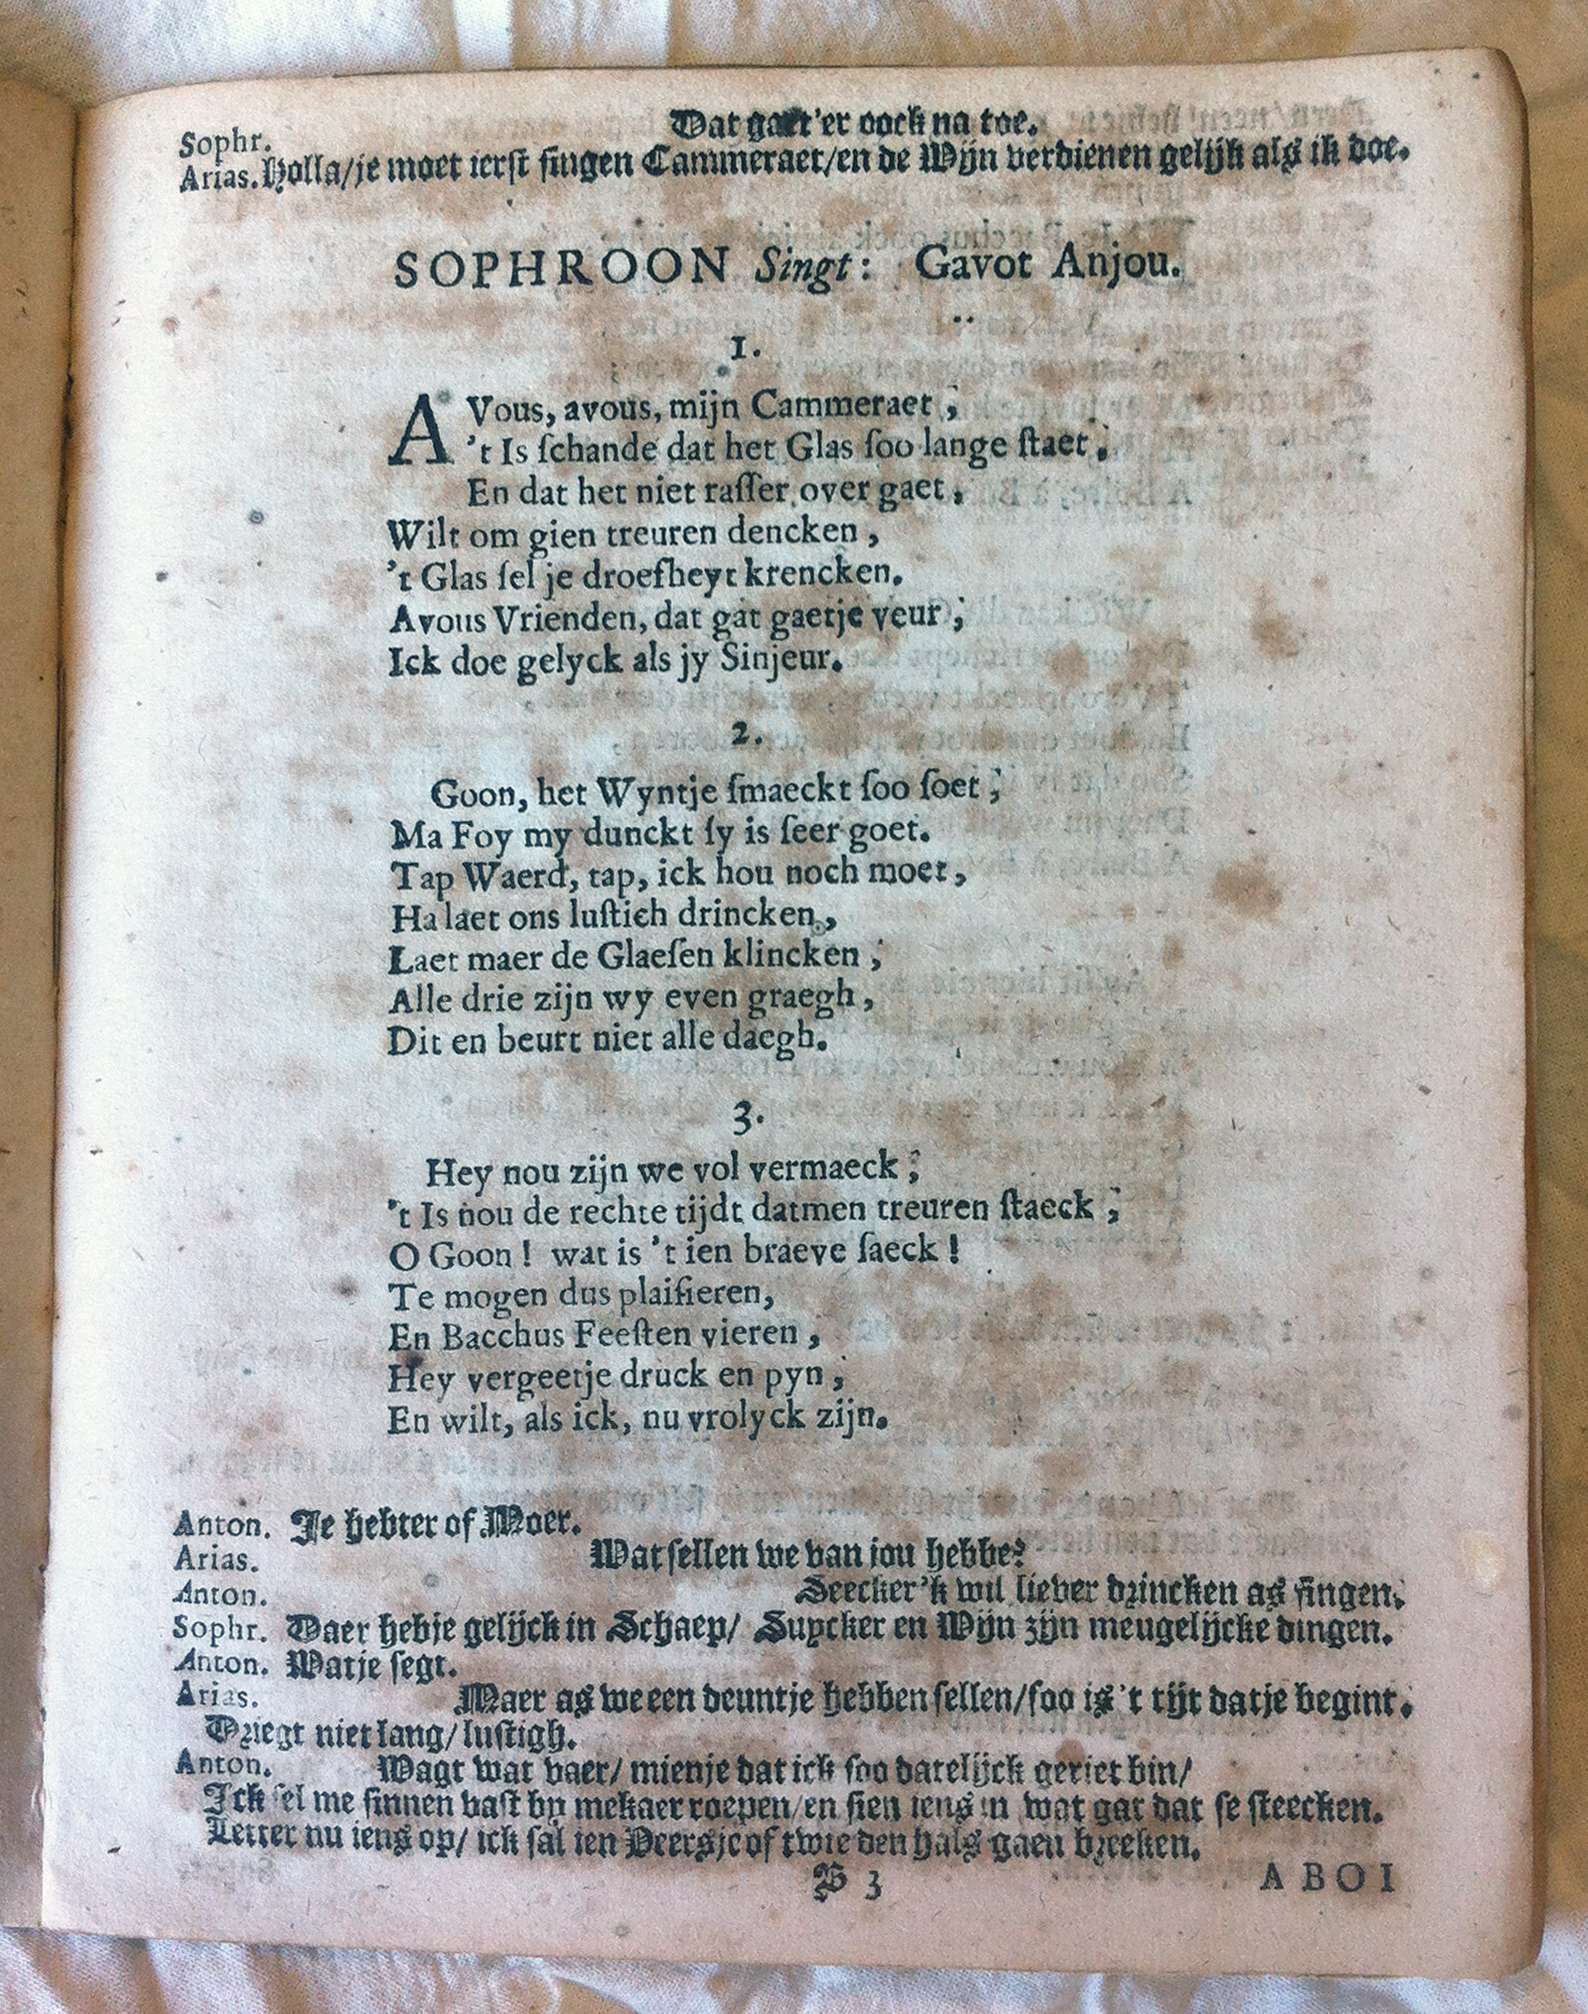 Sophr. Dat gaet'er oock na toe.
Arias. Holla/je moet ierst singen Cammeraet/en de Wijn verdienen gelijk als ik doe.
SOPHROON Singt: Gavot Anjou.
1.
A Vous, avous, mijn Cammeraet;
't Is ſchande dat het Glas ſoo lange ſtaet;
En dat het niet raſſer over gaet,
Wilt om gien treuren dencken,
't Glas ſel je droefheyt krencken.
Avous Vrienden, dat gat gaetje veur;
Ick doe gelyck als jy Sinjeur.
2.
Goon, het Wyntje ſmaeckt ſoo ſoet;
Ma Foy my dunckt ſy is ſeer goet.
Tap Waerd, tap, ick hou noch moet,
Ha laet ons luſtich drincken,
Laet maer de Glaeſen klincken;
Alle drie zijn wy even graegh,
Dit en beurt niet alle daegh.
3.
Hey nou zijn we vol vermaeck;
't Is nou de rechte tijdt datmen treuren ſtaeck;
O Goon! wat is 't ien braeve ſaeck!
Te mogen dus plaiſieren,
En Bacchus Feeſten vieren,
Hey vergeetje druck en pyn;
En wilt, als ick, nu vrolyck zijn.
Anton. Je hebter of Moer.
Arias. Wat ſellen we van jou hebbe?
Anton. Seecker 'k wil liever drincken as ſingen.
Sophr. Daer hebje gelijck in Schaep/ Suycker en Wijn zijn meugelijcke dingen.
Anton. Watje ſegt.
Arias. Maer as we een deuntje hebben ſellen/ſoo is 't tijt datje begint.
Driegt niet lang/ luſtigh.
Anton. Wagt wat vaer/ mienje dat ick ſoo datelijck geriet bin/
Ick ſel me ſinnen vaſt by mekaer roepen/en ſien iens in wat gat dat ſe ſteecken.
Letter nu iens op/ ick ſal ien Veersje of twie den hals gaen breeken.
B 3 A BOI